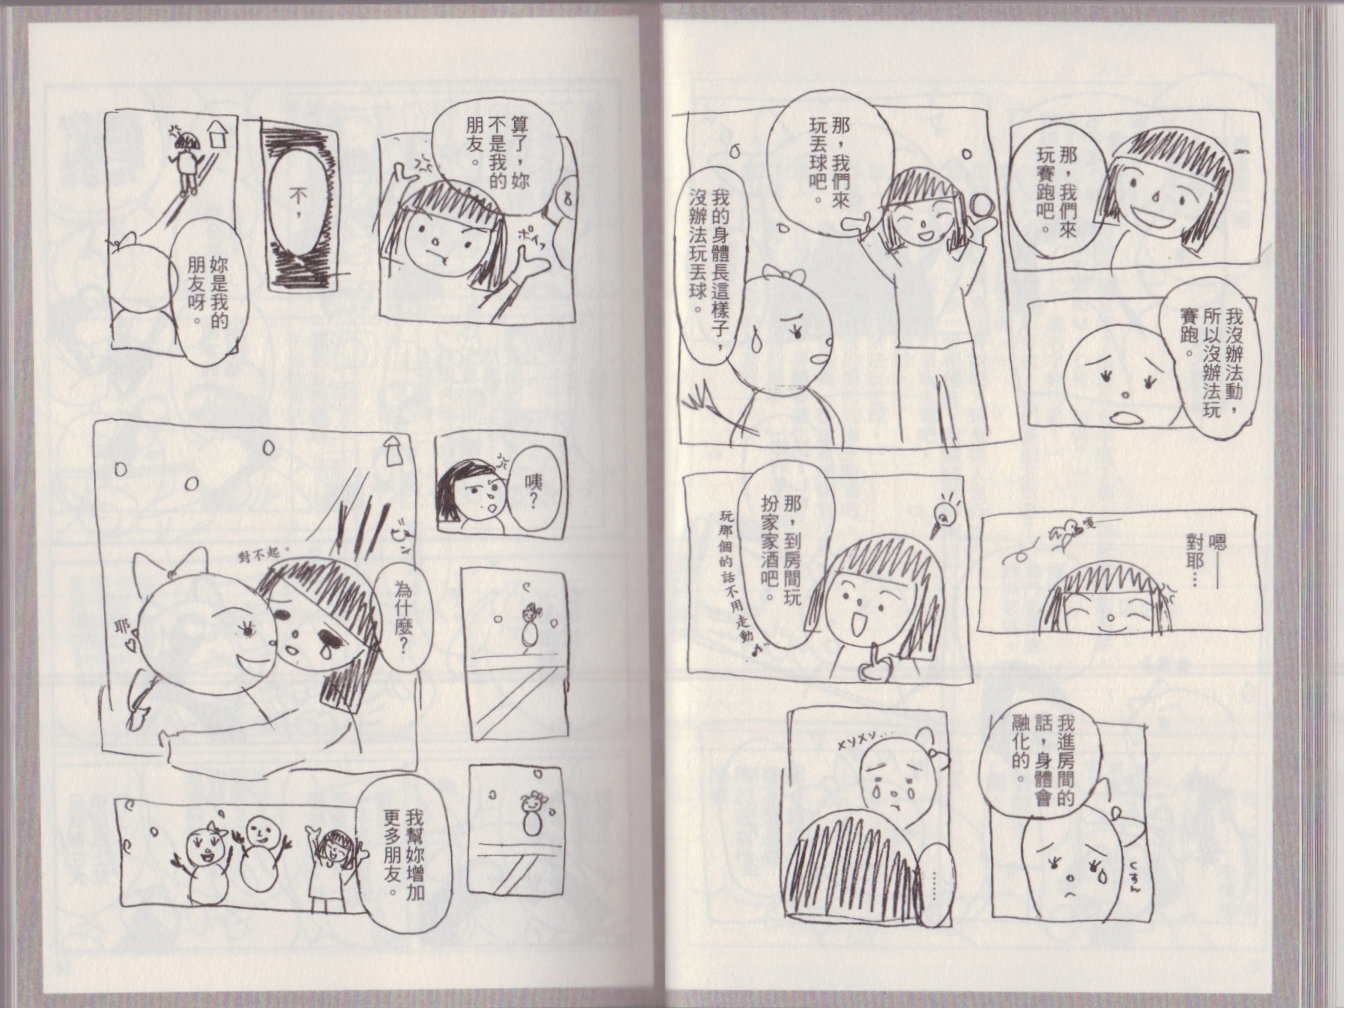 那，我們來
玩賽跑吧。
我沒辦法動，
所以沒辦法玩
賽跑。
那，我們來
玩丟球吧。
我的身體長這樣子，
沒辦法玩丟球。
嗯——
對耶…
嘎
那，到房間玩
扮家家酒吧。
玩那個的話不用走動♪
我進房間的
話，身體會
融化的。
くすん
メソメソ…
………
算了，妳
不是我的
朋友。
ポイッ
不，
妳是我的
朋友呀。
咦？
為什麼？
對不起。
耶♡
我幫妳增加
更多朋友。